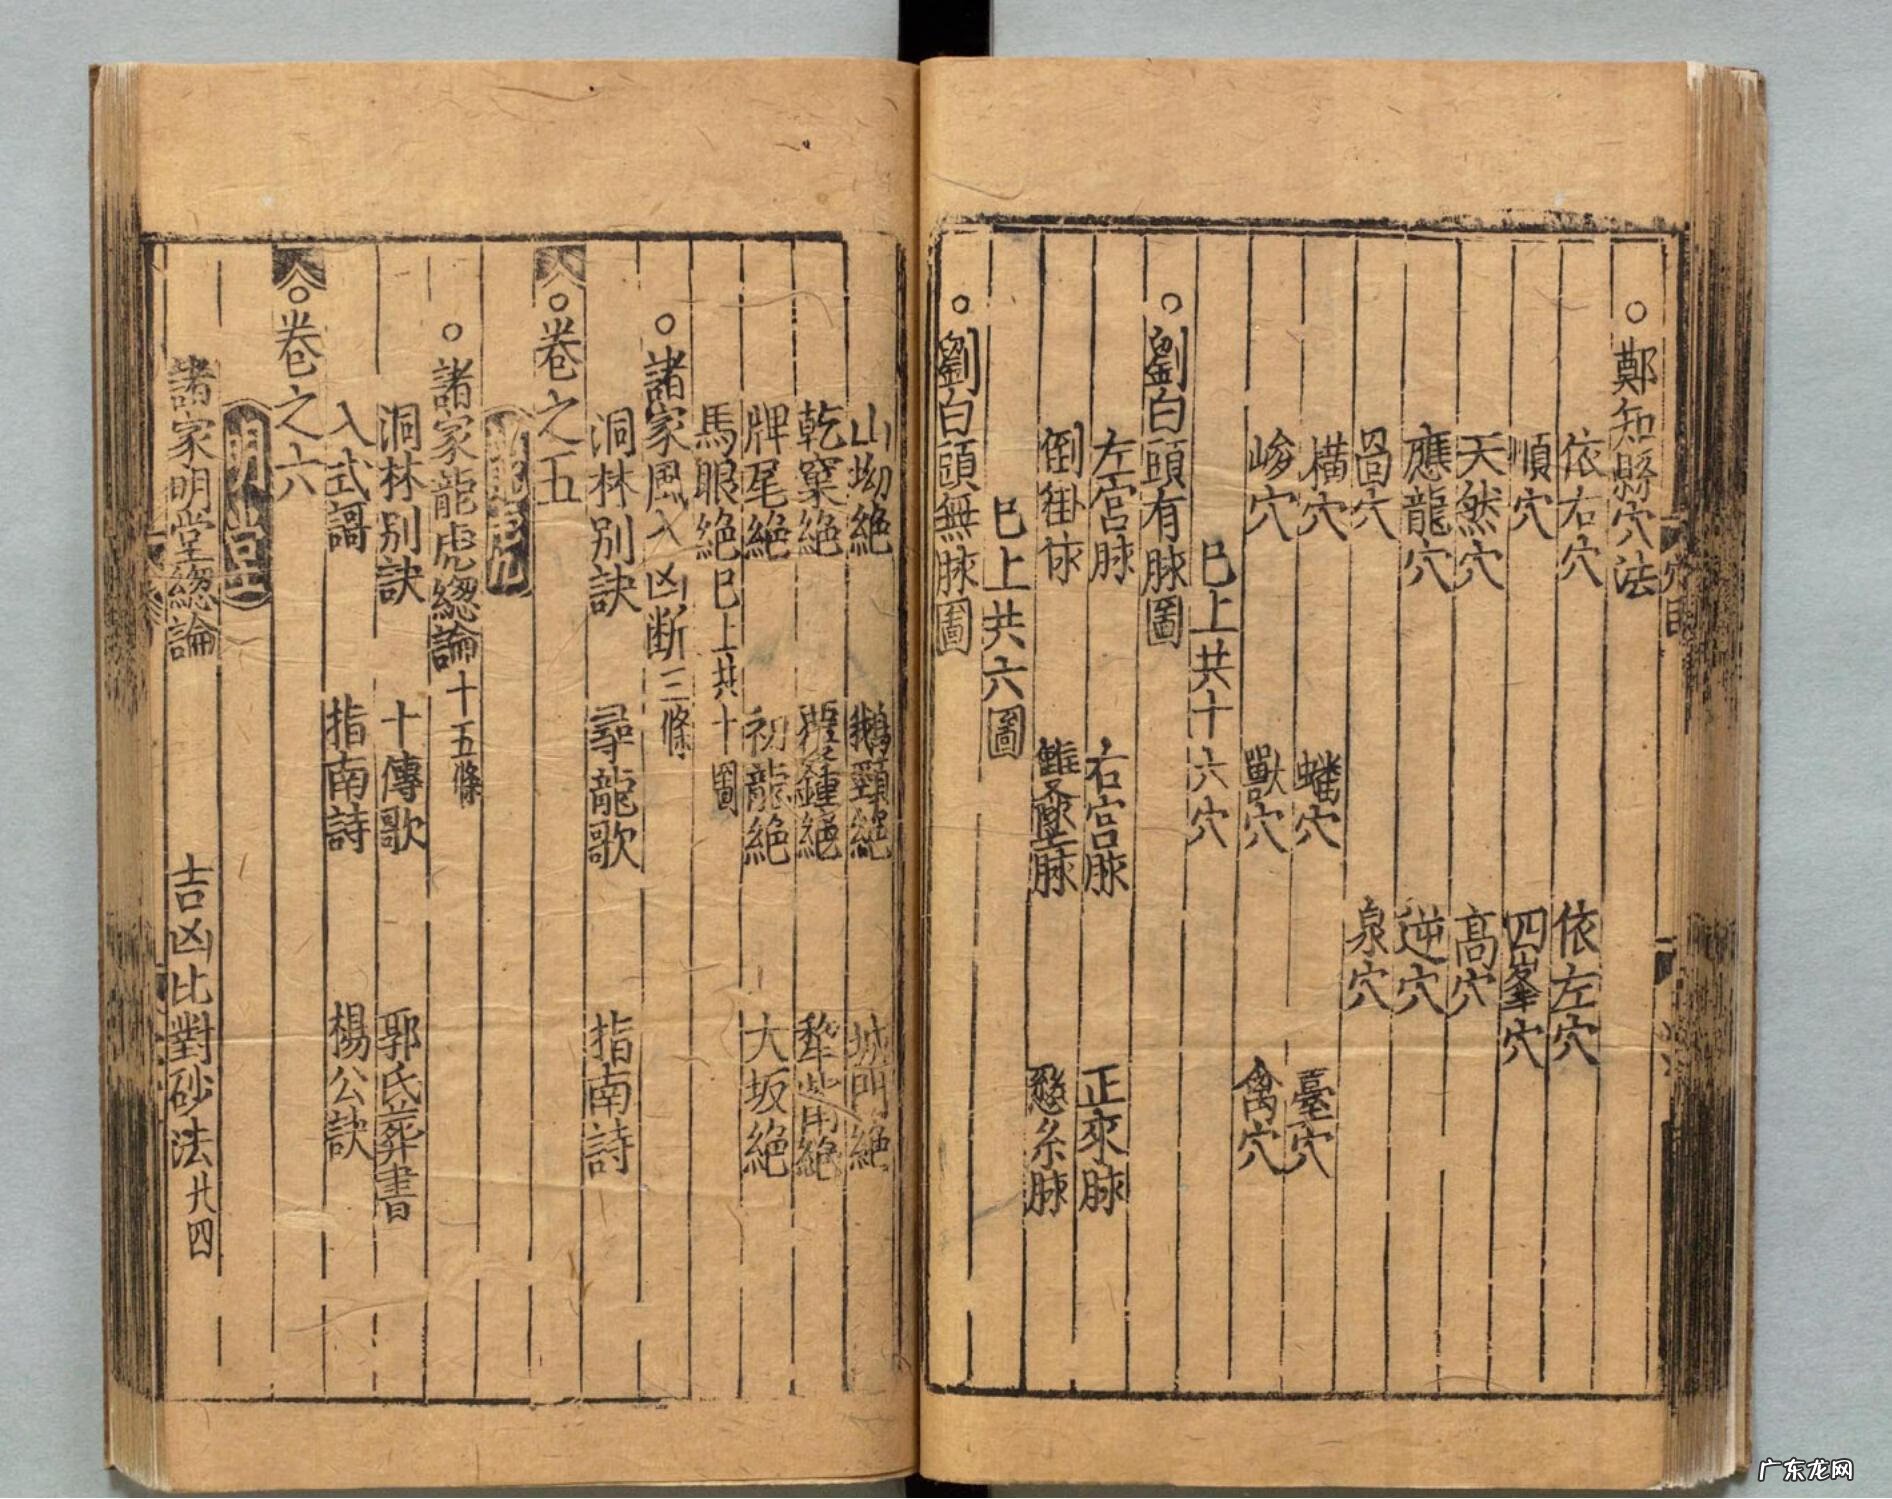 ○鄭知縣穴法
依右穴 依左穴
順穴 四峯穴
天然穴 高穴
應龍穴 逆穴
穴 泉穴
橫穴 蟠穴 臺穴
峻穴 獸穴 禽穴
巳上共十六穴
○劉白頭有脉圖
左宮脉 右宮脉 正來脉
倒掛脉 脉 糸脉
巳上共六圖
○劉白頭無脉圖
山坳絶 鵝頸絶 城門絶
乾窠絶 覆鍾絶 犂觜絶
牌尾絶 初龍絶 大坂絶
馬眼絶巳上共十圖
○諸家風入凶斷三條
洞林別訣 尋龍歌 指南詩
○卷之五
龍虎
○諸家龍虎緫論十五條
洞林別訣 十傳歌 郭氏葬書
入式謌 指南詩 楊公訣
○卷之六
明堂
諸家明堂緫論 吉凶比對砂法廿四
穴目
广东龙网